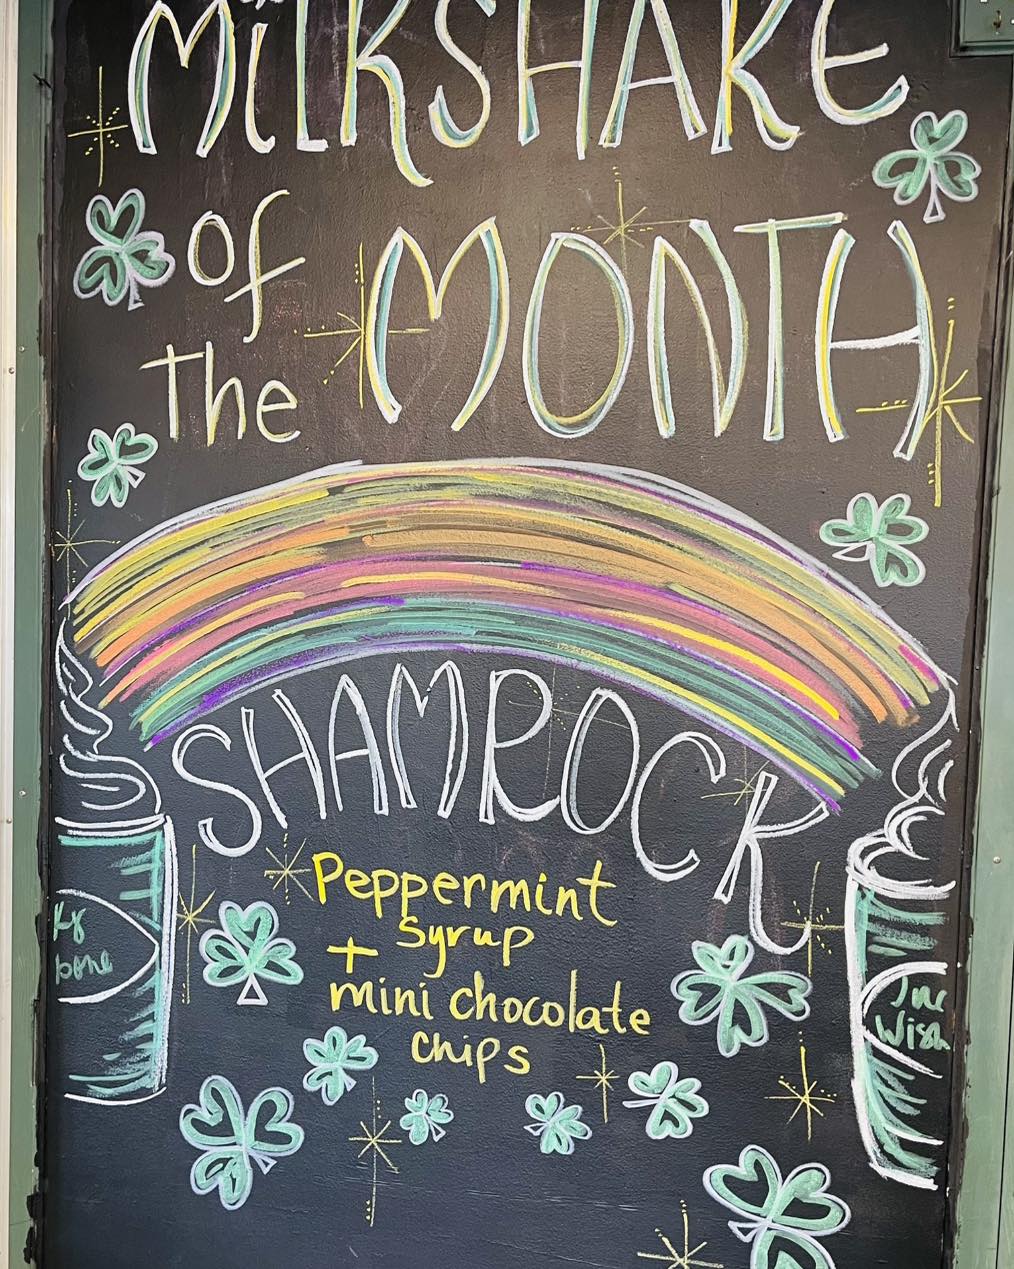 MiLKSHAKE
of
The MONTH
SHAMROCK
Peppermint
syrup
+
mini chocolate
chips
bone
The
Wish